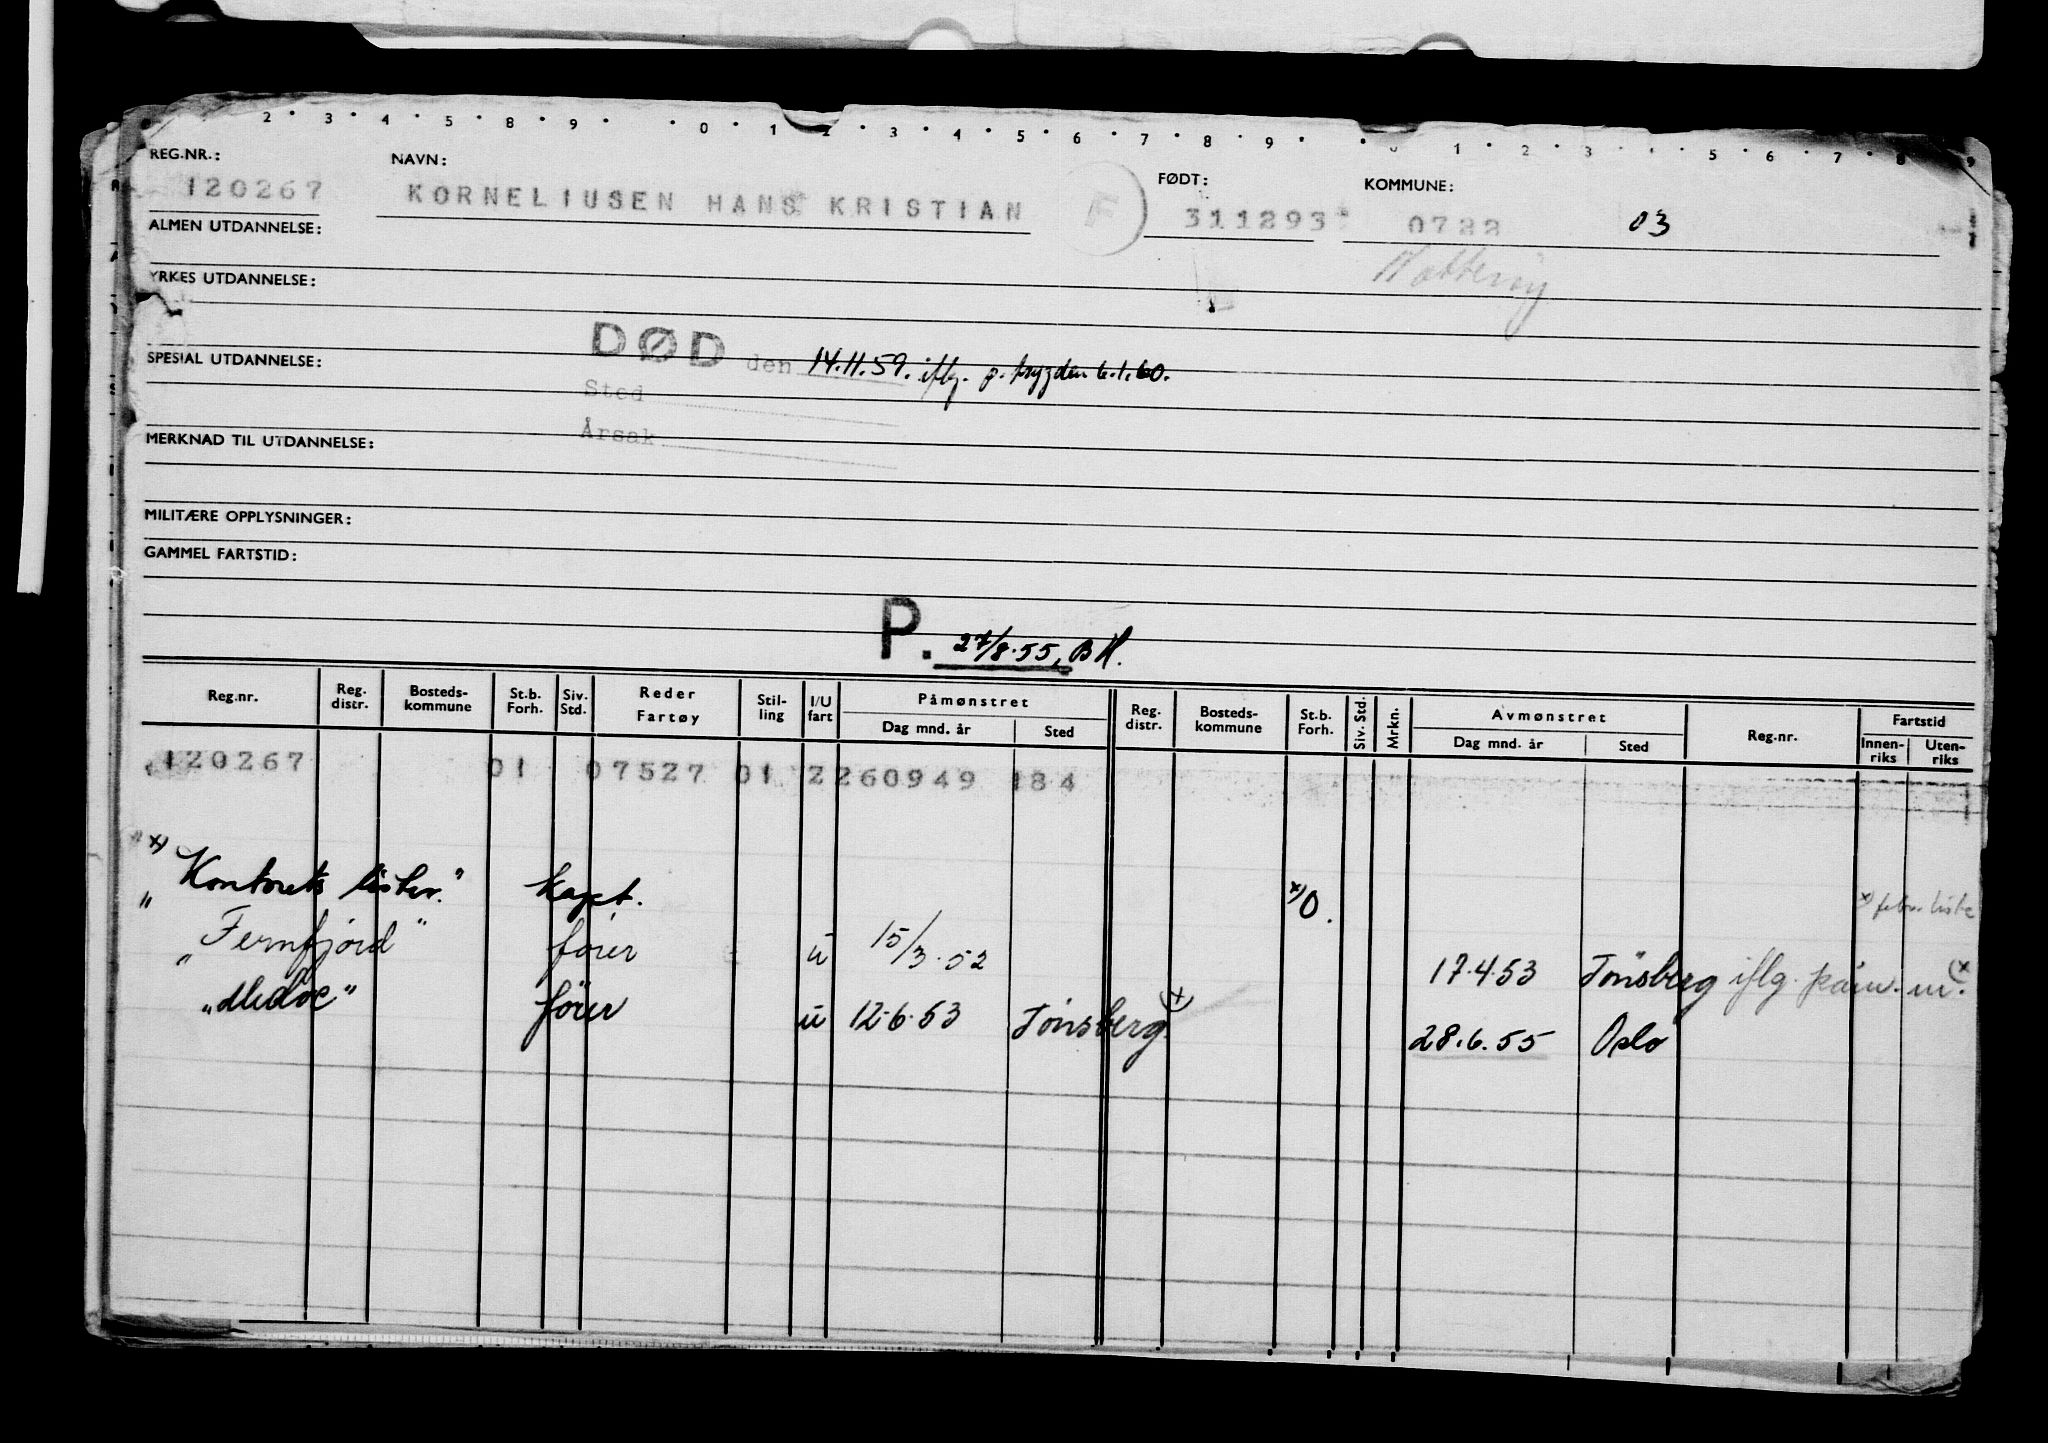 2 · 3 · 4 · 5 · 8 · 9 · · 0 · 1 · 2 · 3 · 4 · 5 · 6 · 7 · 8 · 9 · · 0 · 1 · 2 · 3 · 4 · 5 · 6 · 7 · 8 · 9
REG.NR.: NAVN: FØDT: KOMMUNE:
120267 KORNELIUSEN HANS KRISTIAN F 311293 0722 03
ALMEN UTDANNELSE:
Nøtterøy
YRKES UTDANNELSE:
DØD den 14.11.59. iflg. p. trygden 6.1.60.
SPESIAL UTDANNELSE:
Sted
Årsak
MERKNAD TIL UTDANNELSE:
MILITÆRE OPPLYSNINGER:
GAMMEL FARTSTID:
P. 27/8.55, BH.
Reg.nr. Reg. distr. Bosteds- kommune St.b. Forh. Siv. Std. Reder Fartøy Stil- ling I/U fart Påmønstret Dag mnd. år Sted Reg. distr. Bosteds- kommune St.b. Forh. Siv. Std. Mrkn. Avmønstret Dag mnd. år Sted Reg.nr. Fartstid Innen- riks Uten- riks
120267 01 07527 01 2 260949 184
x) "Kontorets lister." kapt. x) O. x) febr. liste
"Fernfjord" fører u 15/3.52 17.4.53 Tønsberg iflg. påm. m. (x
fører u 12.6.53 Tønsberg. x) 28.6.55 Oslo